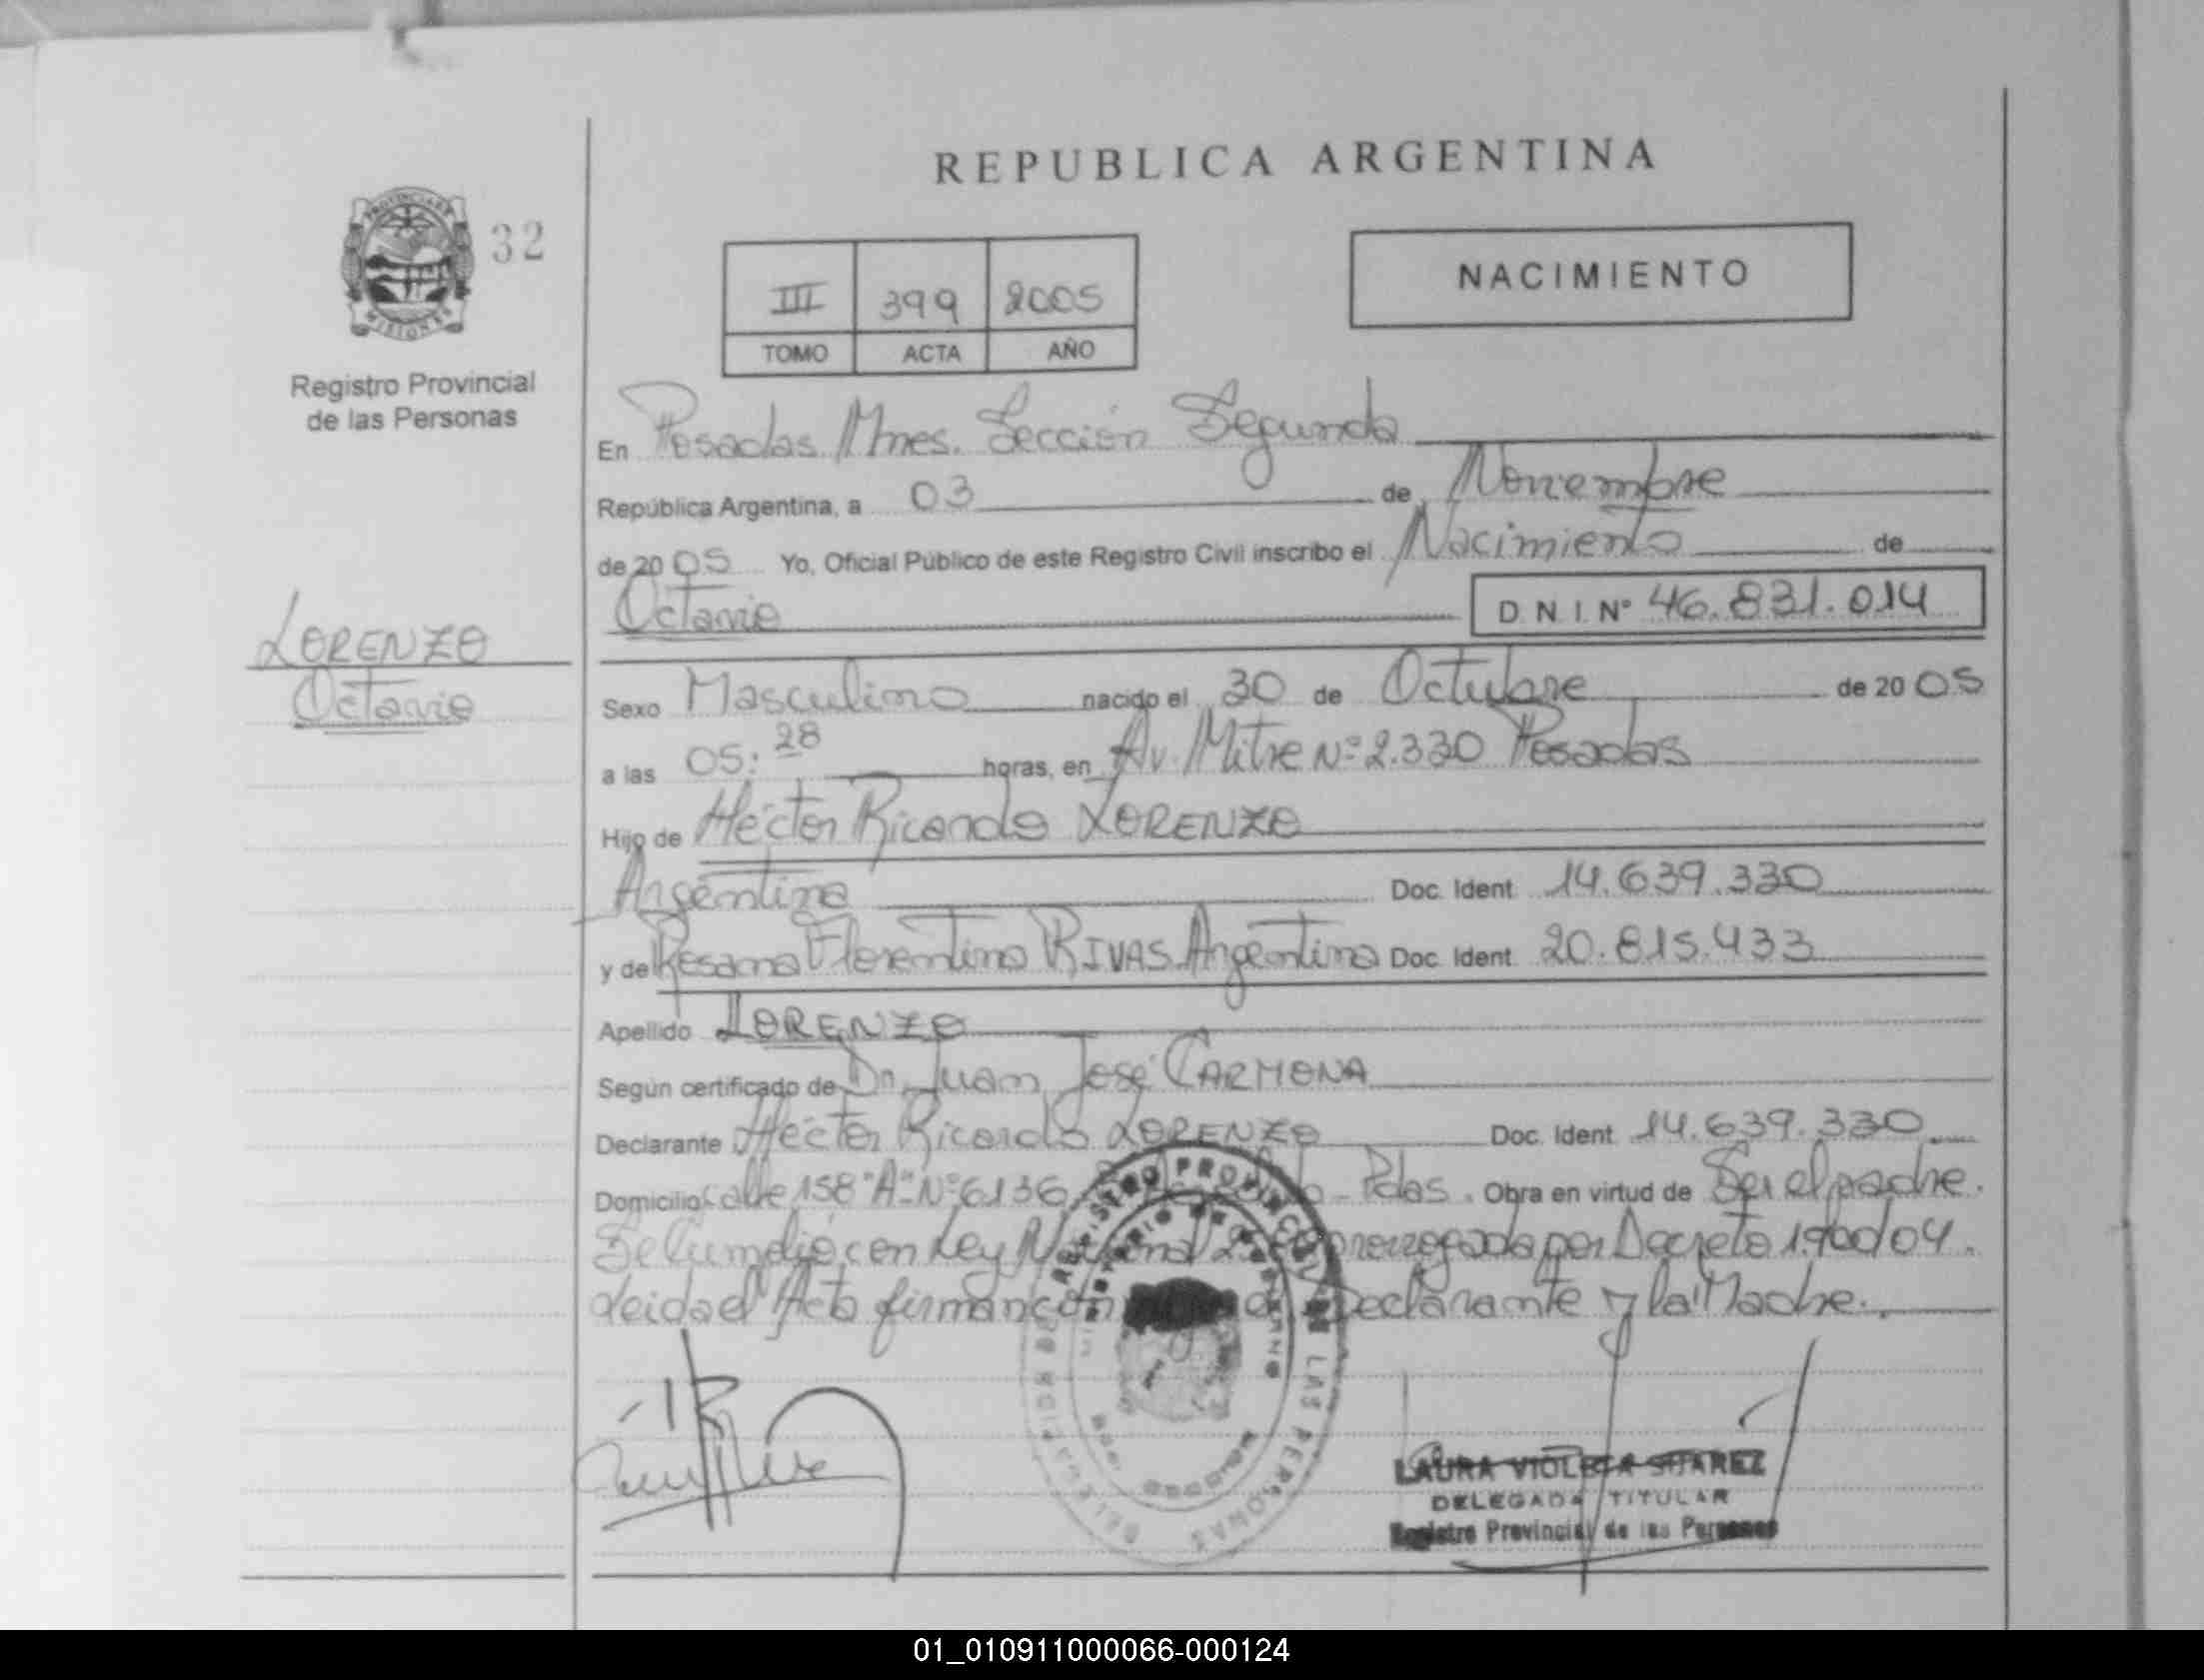 REPUBLICA ARGENTINA
PROVINCIA DE
MISIONES
32
Registro Provincial
de las Personas
III 399 2005
TOMO ACTA AÑO
NACIMIENTO
En Posadas Mnes. Sección Segunda
República Argentina, a 03 de Noviembre
de 2005 Yo, Oficial Público de este Registro Civil inscribo el Nacimiento de
Octavio D.N.I. Nº 46.831.014
LORENZO
Octavio
Sexo Masculino nacido el 30 de Octubre de 2005
a las 05:28 horas, en Av. Mitre Nº 2.330 Posadas
Hijo de Héctor Ricardo LORENZO
Argentino Doc. Ident. 14.639.330
y de Rosana Florentina RIVAS Argentina Doc. Ident. 20.815.433
Apellido LORENZO
Según certificado de Dr. Juan José CARMONA
Declarante Héctor Ricardo LORENZO Doc. Ident. 14.639.330
Domicilio Calle 158 "A" Nº 6136 Pdas. Obra en virtud de Ser el padre.
Se Cumplió con Ley Nacional prorrogada por Decreto 1.900/04.
Leida el Acta firman con Declarante y la Madre.
REGISTRO PROVINCIAL DE LAS PERSONAS
MINISTERIO DE GOBIERNO
POSADAS MISIONES
LAURA VIOLETA SUAREZ
DELEGADA TITULAR
Registro Provincial de las Personas
01_010911000066-000124